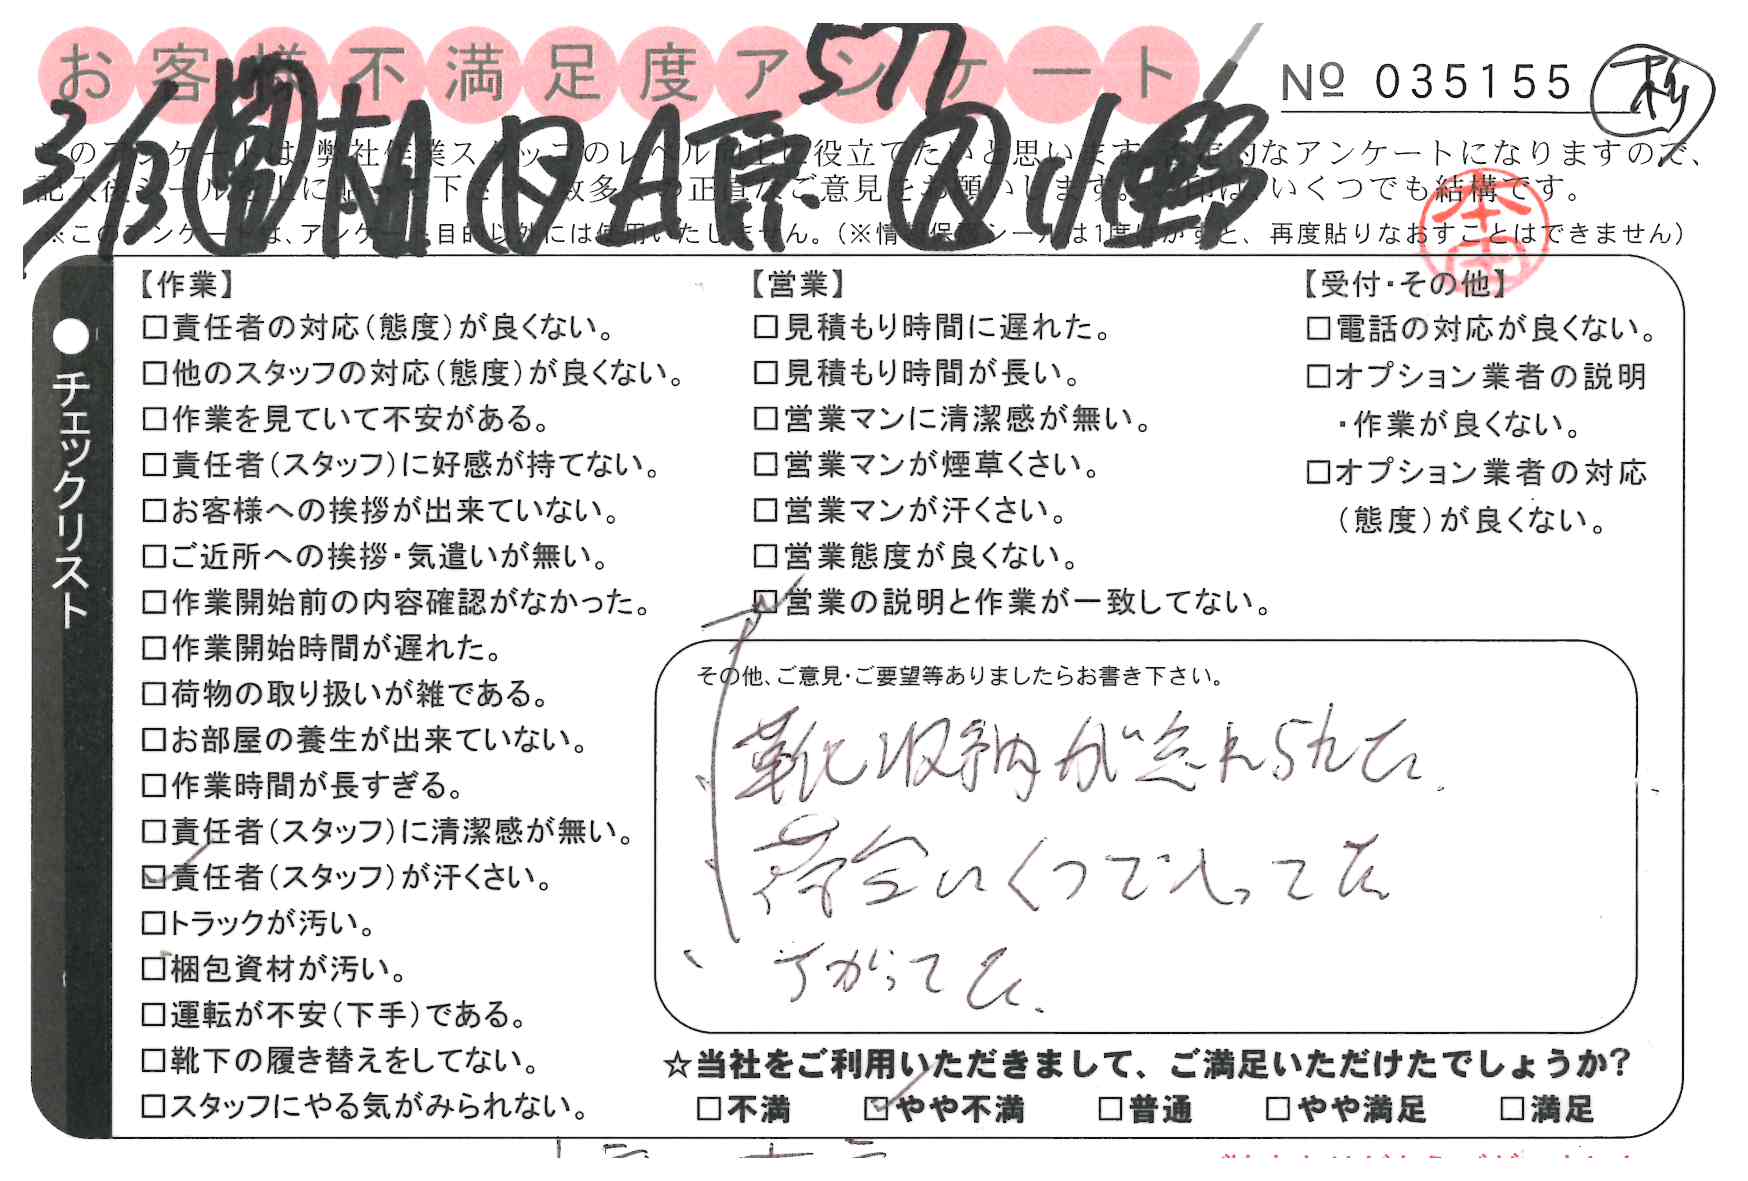 お客様不満足度アンケート
577
№ 035155
3/13 村 田 A 原 小野
このアンケートは、弊社作業スタッフのレベル向上に役立てたいと思います。なアンケートになりますので、
いくつでも結構です。
※このアンケートは、アンケート目的以外には使用いたしません。（※情報保護シールは1度はがすと、再度貼りなおすことはできません）
●チェックリスト
【作業】
□責任者の対応（態度）が良くない。
□他のスタッフの対応（態度）が良くない。
□作業を見ていて不安がある。
□責任者（スタッフ）に好感が持てない。
□お客様への挨拶が出来ていない。
□ご近所への挨拶・気遣いが無い。
□作業開始前の内容確認がなかった。
□作業開始時間が遅れた。
□荷物の取り扱いが雑である。
□お部屋の養生が出来ていない。
□作業時間が長すぎる。
□責任者（スタッフ）に清潔感が無い。
☑責任者（スタッフ）が汗くさい。
□トラックが汚い。
□梱包資材が汚い。
□運転が不安（下手）である。
□靴下の履き替えをしてない。
□スタッフにやる気がみられない。
【営業】
□見積もり時間に遅れた。
□見積もり時間が長い。
□営業マンに清潔感が無い。
□営業マンが煙草くさい。
□営業マンが汗くさい。
□営業態度が良くない。
☑営業の説明と作業が一致してない。
【受付・その他】
□電話の対応が良くない。
□オプション業者の説明
・作業が良くない。
□オプション業者の対応
（態度）が良くない。
その他、ご意見・ご要望等ありましたらお書き下さい。
靴収納が忘れられてた。
いくつ
ちがってた。
☆当社をご利用いただきまして、ご満足いただけたでしょうか？
□不満 ☑やや不満 □普通 □やや満足 □満足